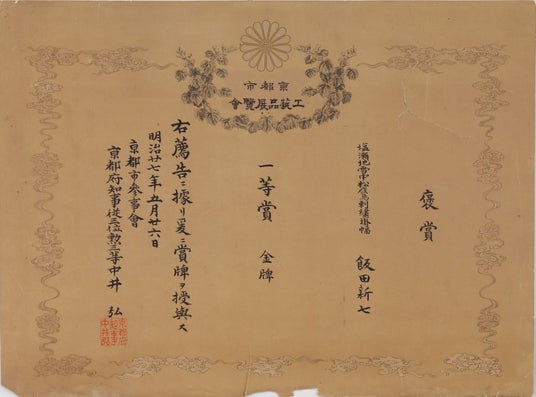 京都市
工藝品展覽會
褒賞
塩瀬地雪中松 刺繍掛幅 飯田新七
一等賞 金牌
右薦告ニ據リ爰ニ賞牌ヲ授與ス
明治廿七年五月廿六日
京都市參事會
京都府知事從三位勲三等中井弘